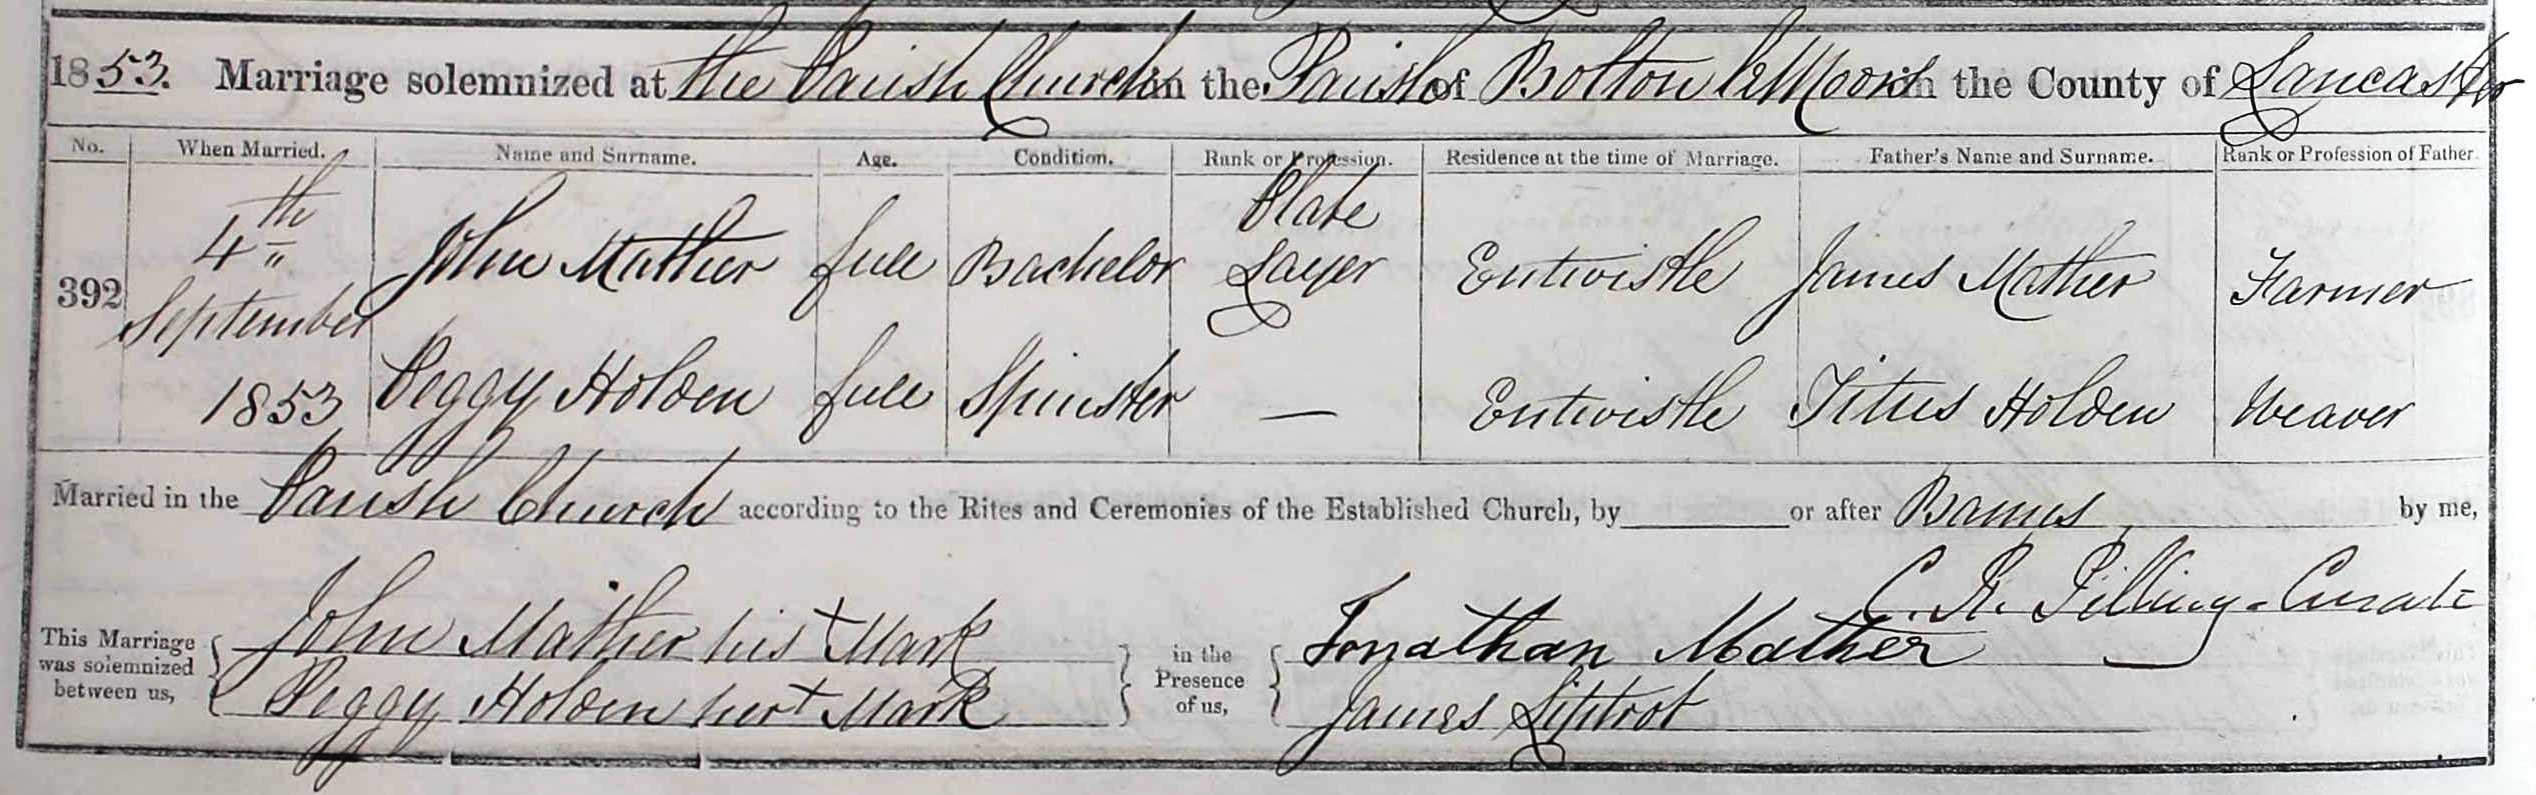 1853. Marriage solemnized at the Parish Church in the Parish of Bolton le Moors in the County of Lancaster
No. When Married. Name and Surname. Age. Condition. Rank or Profession. Residence at the time of Marriage. Father's Name and Surname. Rank or Profession of Father.
392 4th September 1853 John Mather full Bachelor Plate Layer Entwistle James Mather Farmer
Peggy Holden full Spinster — Entwistle Titus Holden Weaver
Married in the Parish Church according to the Rites and Ceremonies of the Established Church, by or after Banns by me,
C. R. Pilling - Curate
This Marriage was solemnized between us, John Mather his + Mark in the Presence of us, Jonathan Mather
Peggy Holden her + Mark James Liptrot